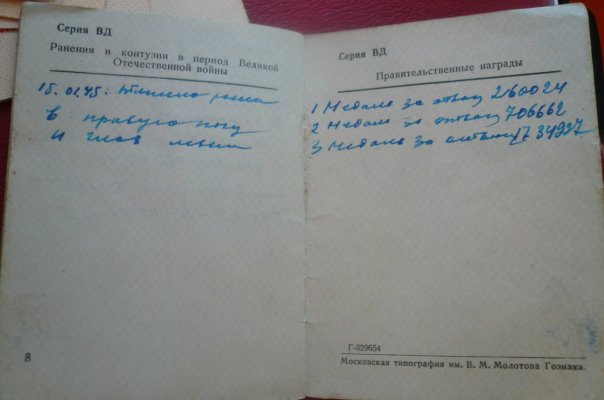 Серия ВД
Ранения и контузии в период Великой
Отечественной войны
15.01.45. тяжело ранен
в правую ногу
и глаз левый
8
Серия ВД
Правительственные награды
1 Медаль За отвагу 260024
2 Медаль За отвагу 706662
3 Медаль За отвагу
Г-329654
Московская типография им. В. М. Молотова Гознака.